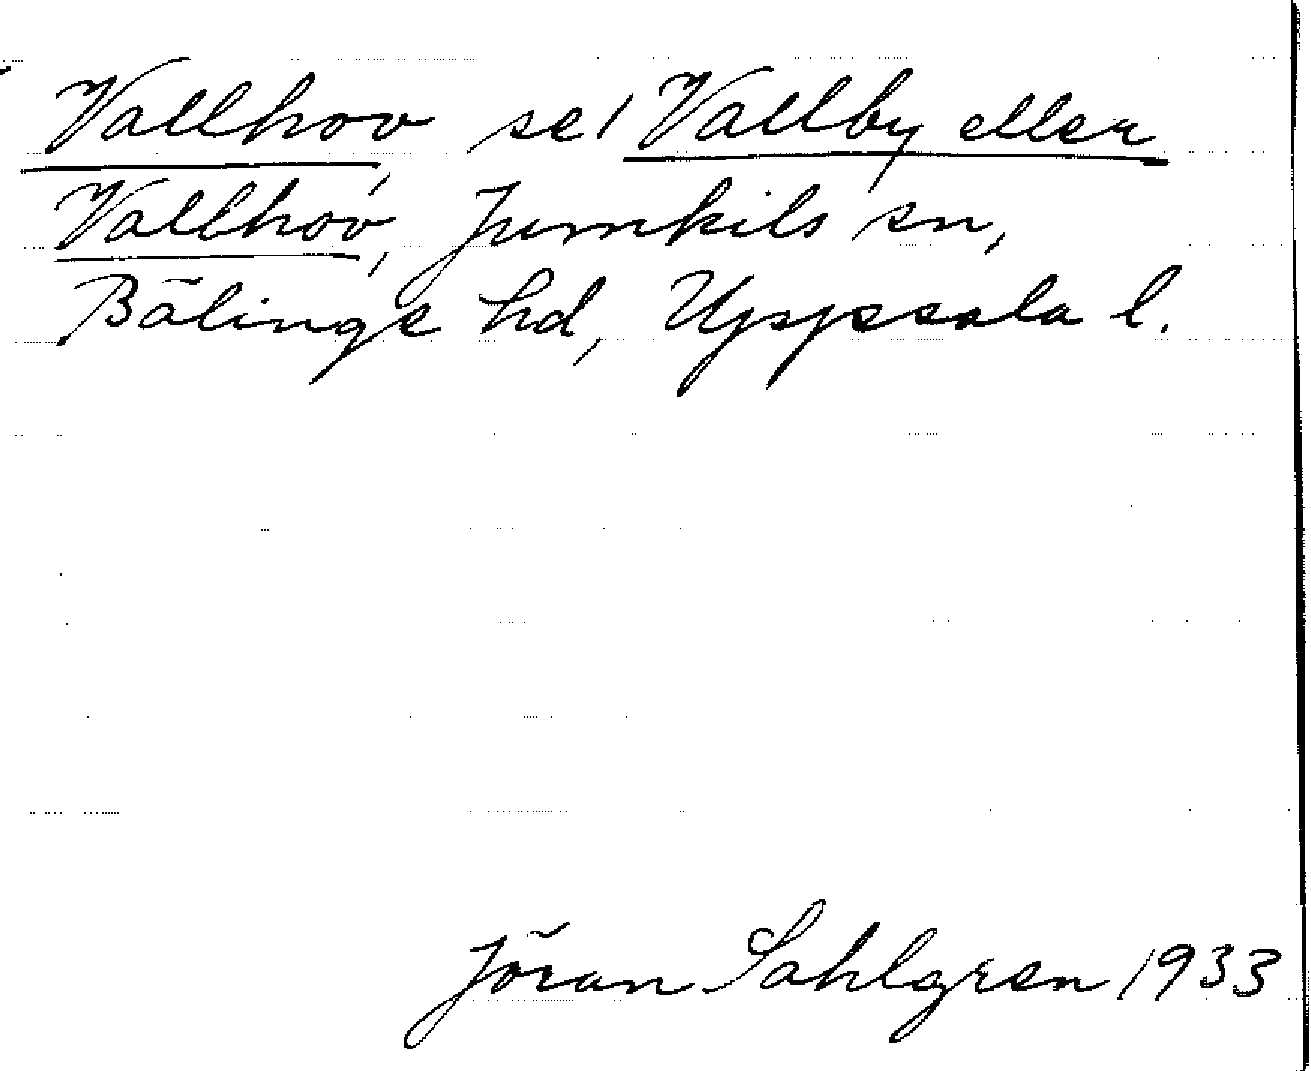 Vallhov, se Vallby eller
Vallhov, Jumkils sn,
Bälings hd, Uppsala l.
Jöran Sahlgren 1933